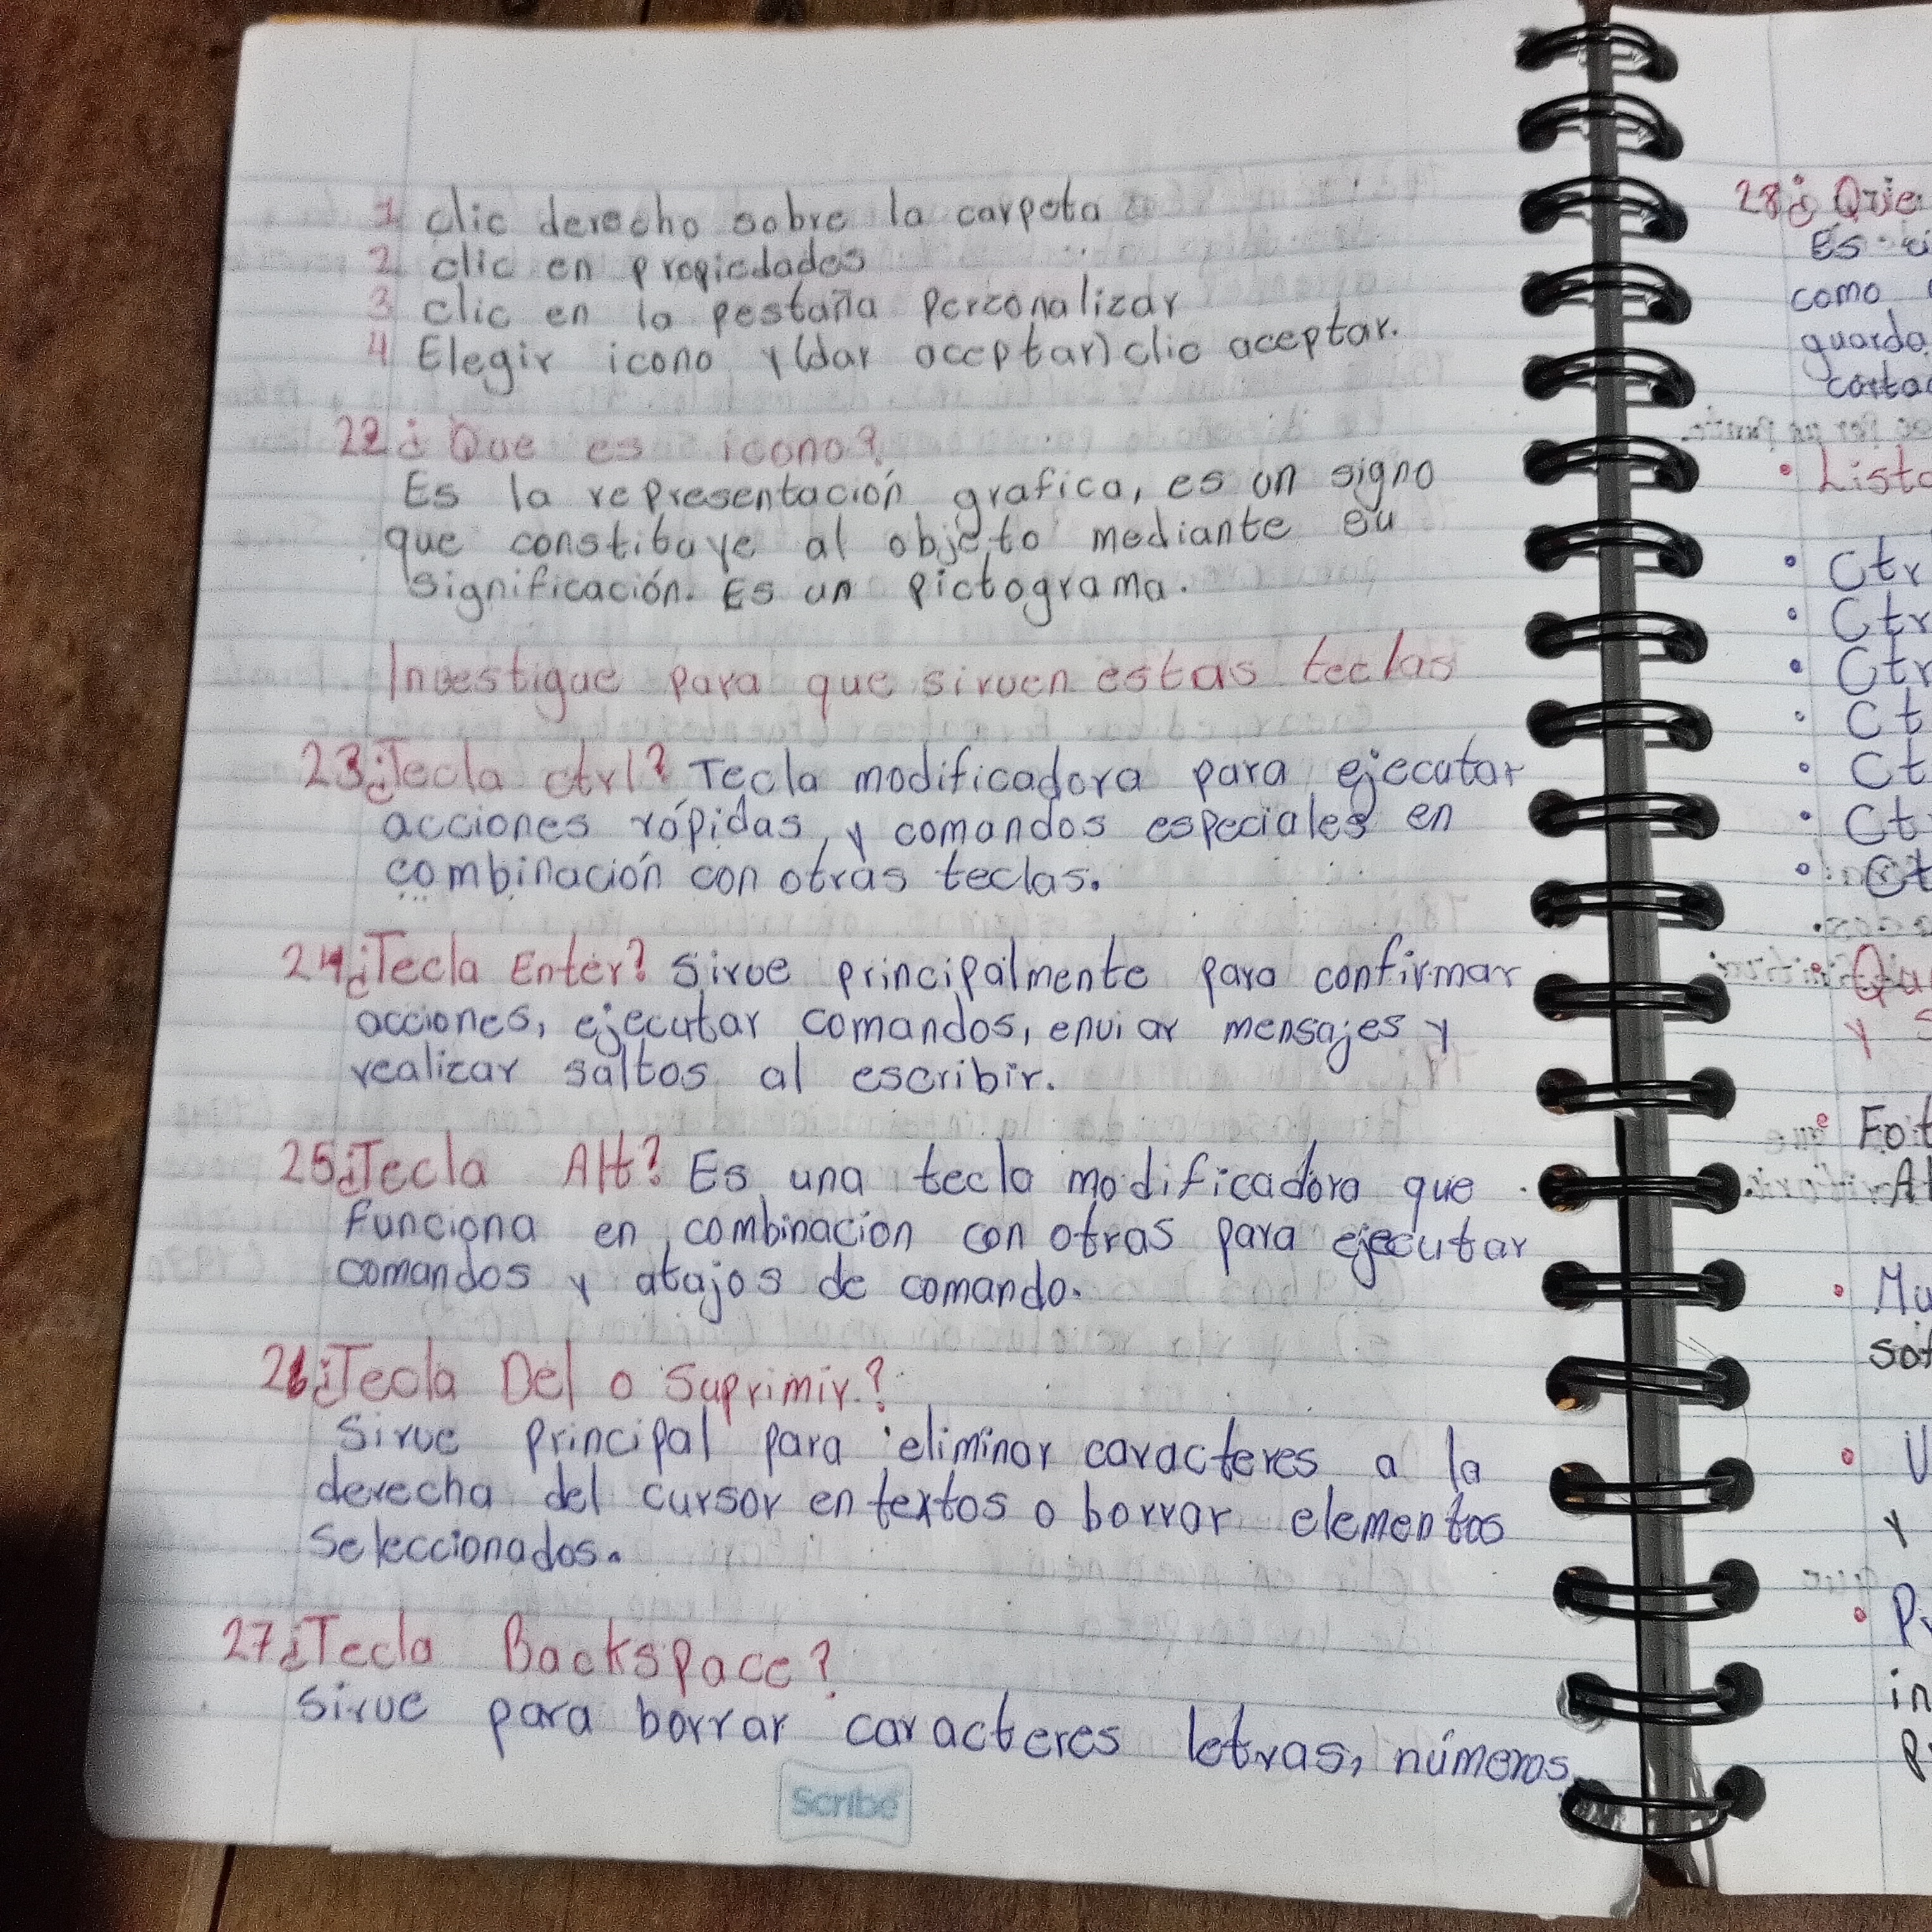 1 clic derecho sobre la carpeta
2 clic en propiedades
3 clic en la pestaña Perzonalizar
4 Elegir icono y (dar aceptar) clic aceptar.
22¿ Que es icono?
Es la representación grafica, es un signo
que constituye al objeto mediante su
significación. Es un Pictograma.
Investigue para que sirven estas teclas
23¿Tecla ctrl? Tecla modificadora para ejecutar
acciones rápidas, y comandos especiales en
combinación con otras teclas.
24¿Tecla Enter? Sirve principalmente para confirmar
acciones, ejecutar comandos, enviar mensajes y
realizar saltos al escribir.
25¿Tecla Alt? Es una tecla modificadora que
funciona en combinacion con otras para ejecutar
comandos y atajos de comando.
26¿Tecla Del o Suprimir?
Sirve principal para eliminar caracteres a la
derecha del cursor en textos o borrar elementos
Seleccionados.
27¿Tecla Backspace?
Sirve para borrar caracteres letras, números,
Scribe
28¿ Quie
Es
como
guarda
Ctr
Ctr
Ctr
Ct
Ct
Ct
Ct
y s
y
in